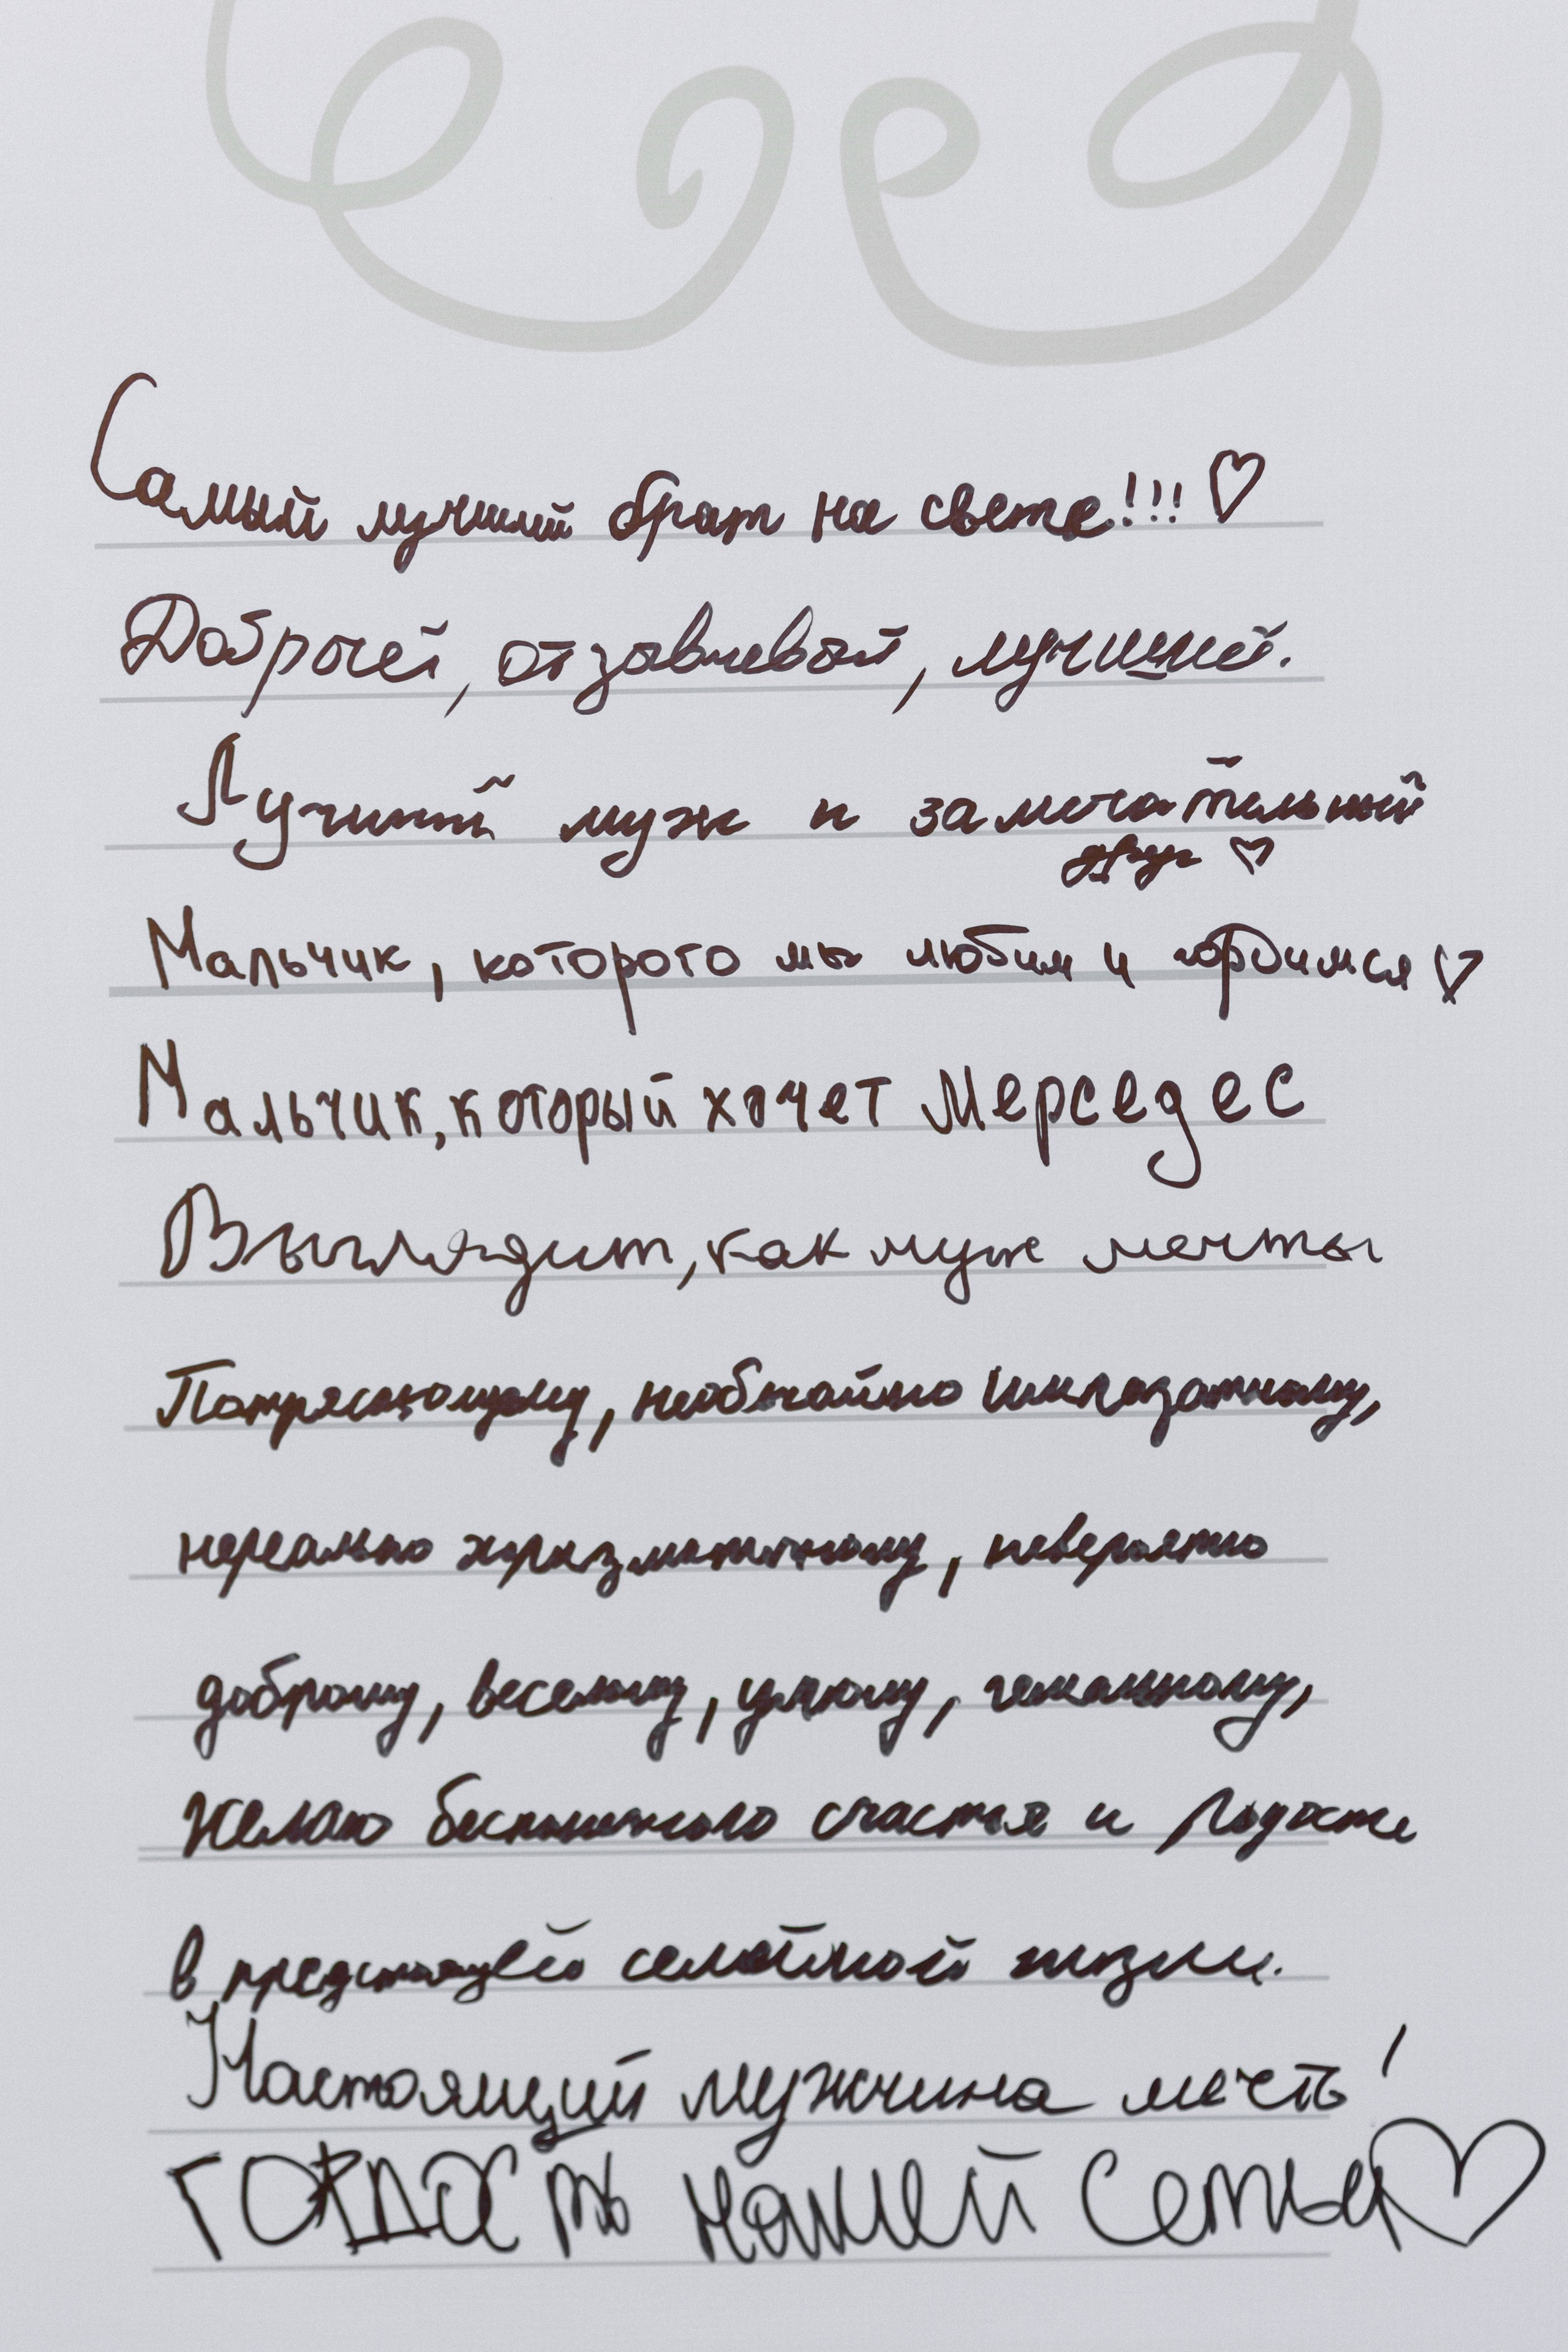 Самый лучший брат на свете!!! ♡
Добрый, отзывчивый, лучший.
Лучший муж и замечательный
друг ♡
Мальчик, которого мы любим и гордимся ♡
Мальчик, который хочет Мерседес
Выглядит, как муж мечты
Потрясающему, необычайно элегантному,
нереально харизматичному, невероятно
доброму, веселому, умному, гениальному,
желаю бесконечного счастья и радости
в предстоящей семейной жизни.
Настоящий мужчина мечты!
ГОРДОСТЬ нашей Семьи ♡